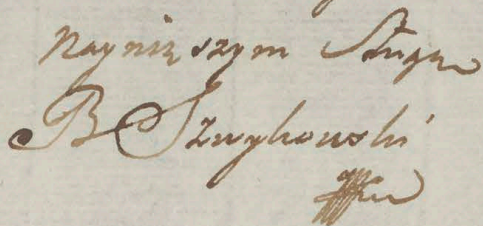 Nayniższym Sługą
B Szwykowski